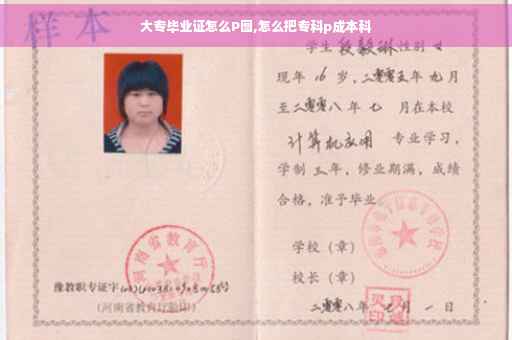 大专毕业证怎么P图,怎么把专科p成本科
样本
学生 段毅琳 性别 女
现年 16 岁,二零零五年 九 月
至二零零八年 七 月在本校
计算机应用 专业学习,
学制 三 年,修业期满,成绩
合格,准予毕业。
学校（章）
校长（章）
二零零八年 月 一 日
河南省教育厅
豫教职专证字
(河南省教育厅验印)